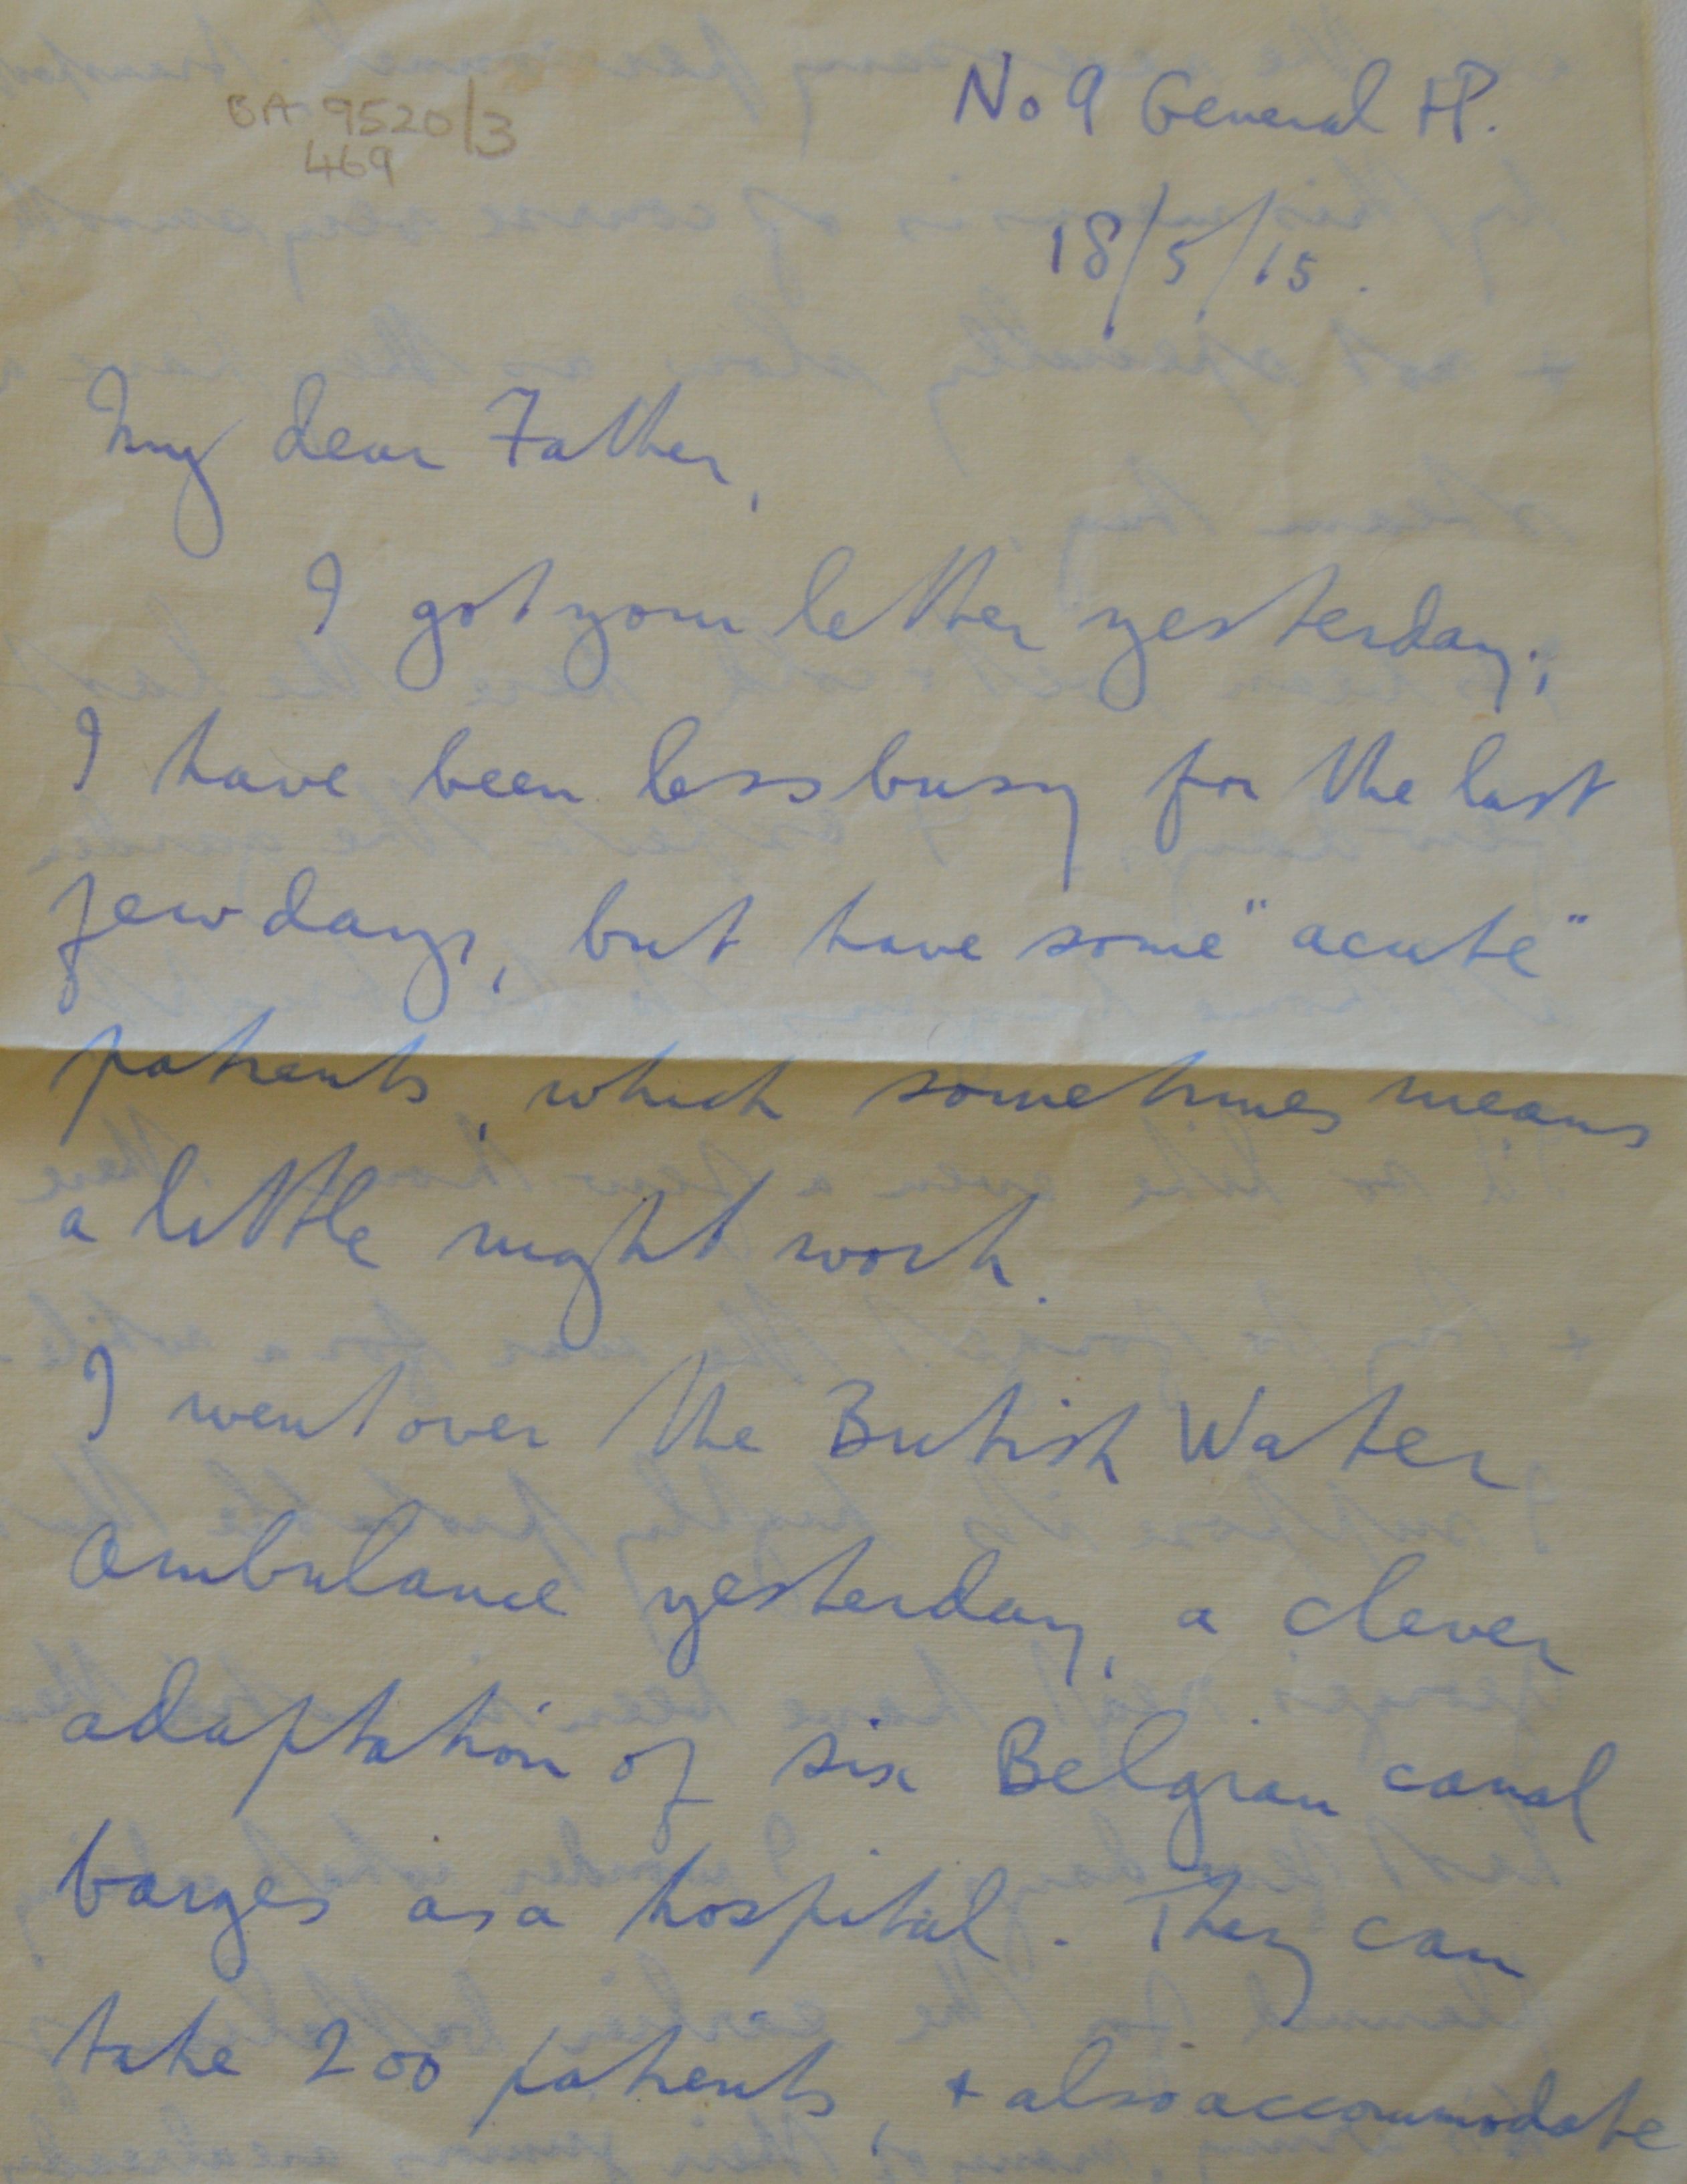 BA 9520/3
469
No 9 General HP.
18/5/15.
My dear Father,
I got your letter yesterday;
I have been less busy for the last
few days, but have some "acute"
patients, which sometimes means
a little night work.
I went over the British Water
Ambulance yesterday, a clever
adaptation of six Belgian canal
barges as a hospital. They can
take 200 patients, + also accommodate